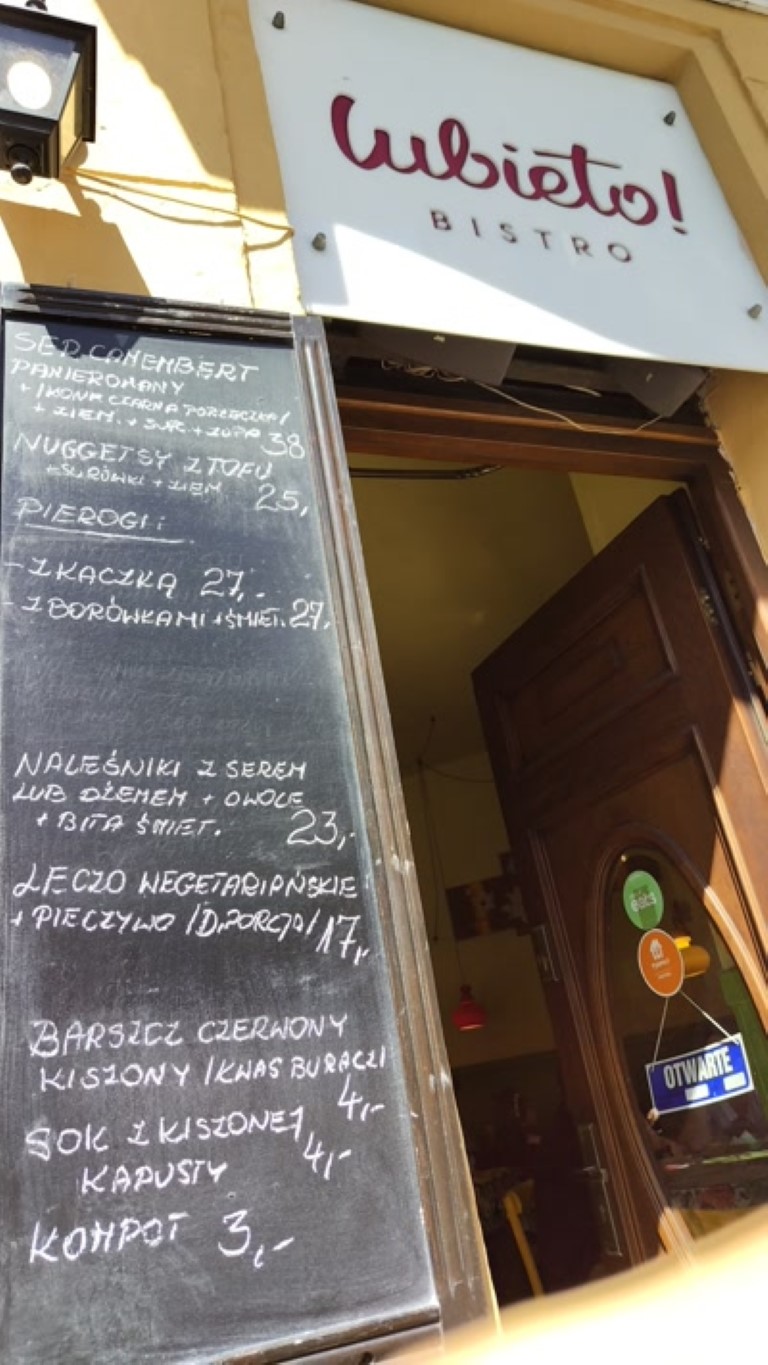 Lubięto!
BISTRO
SER CAMEMBERT
PANIEROWANY
+ /KONF. CZARNA PORZECZKA/
+ ZIEM. + SUR. + ZUPA 38
NUGGETSY Z TOFU
+ SURÓWKI + ZIEM 25,
PIEROGI:
- Z KACZKĄ 27,-
- Z BORÓWKAMI + ŚMIET. 27,
NALEŚNIKI Z SEREM
LUB DŻEMEM + OWOCE
+ BITA ŚMIET. 23,-
LECZO WEGETARIAŃSKIE
+ PIECZYWO /D. PORCJA/ 17,-
BARSZCZ CZERWONY
KISZONY /KWAS BURACZ/
4,-
SOK Z KISZONEJ
KAPUSTY 4,-
KOMPOT 3,-
eats
OTWARTE